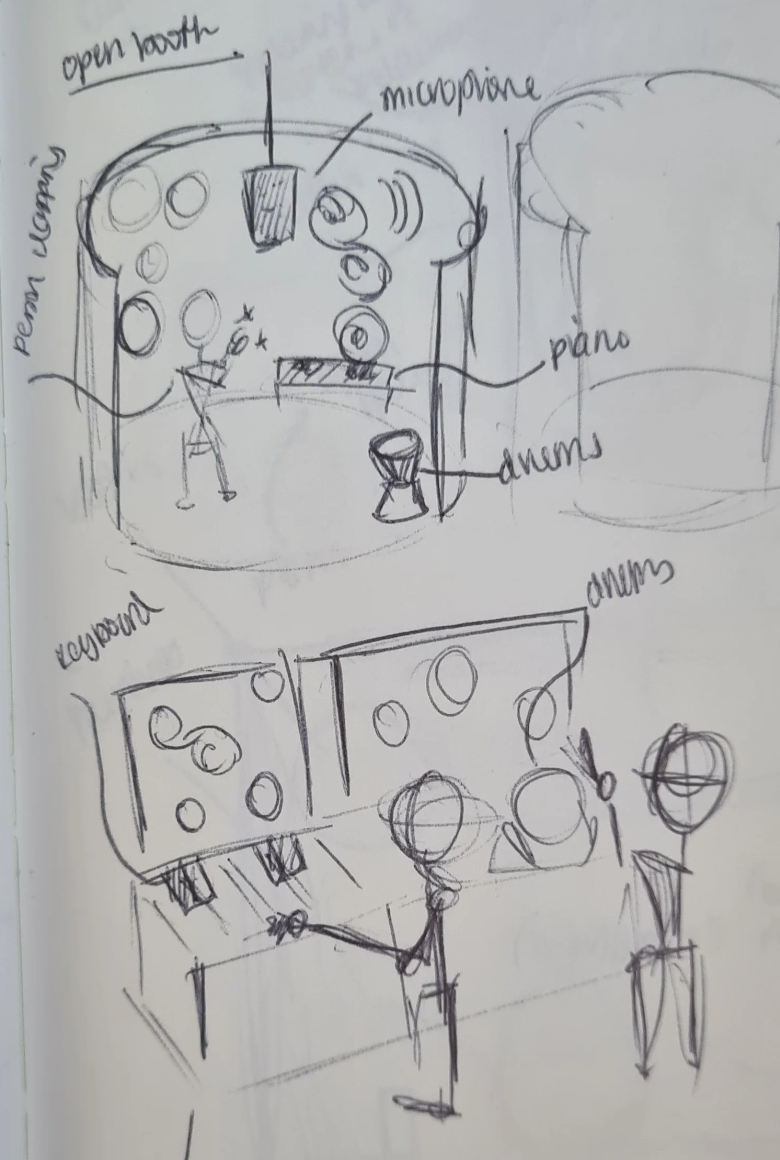 open booth
microphone
person clapping
piano
drums
keyboard
drums